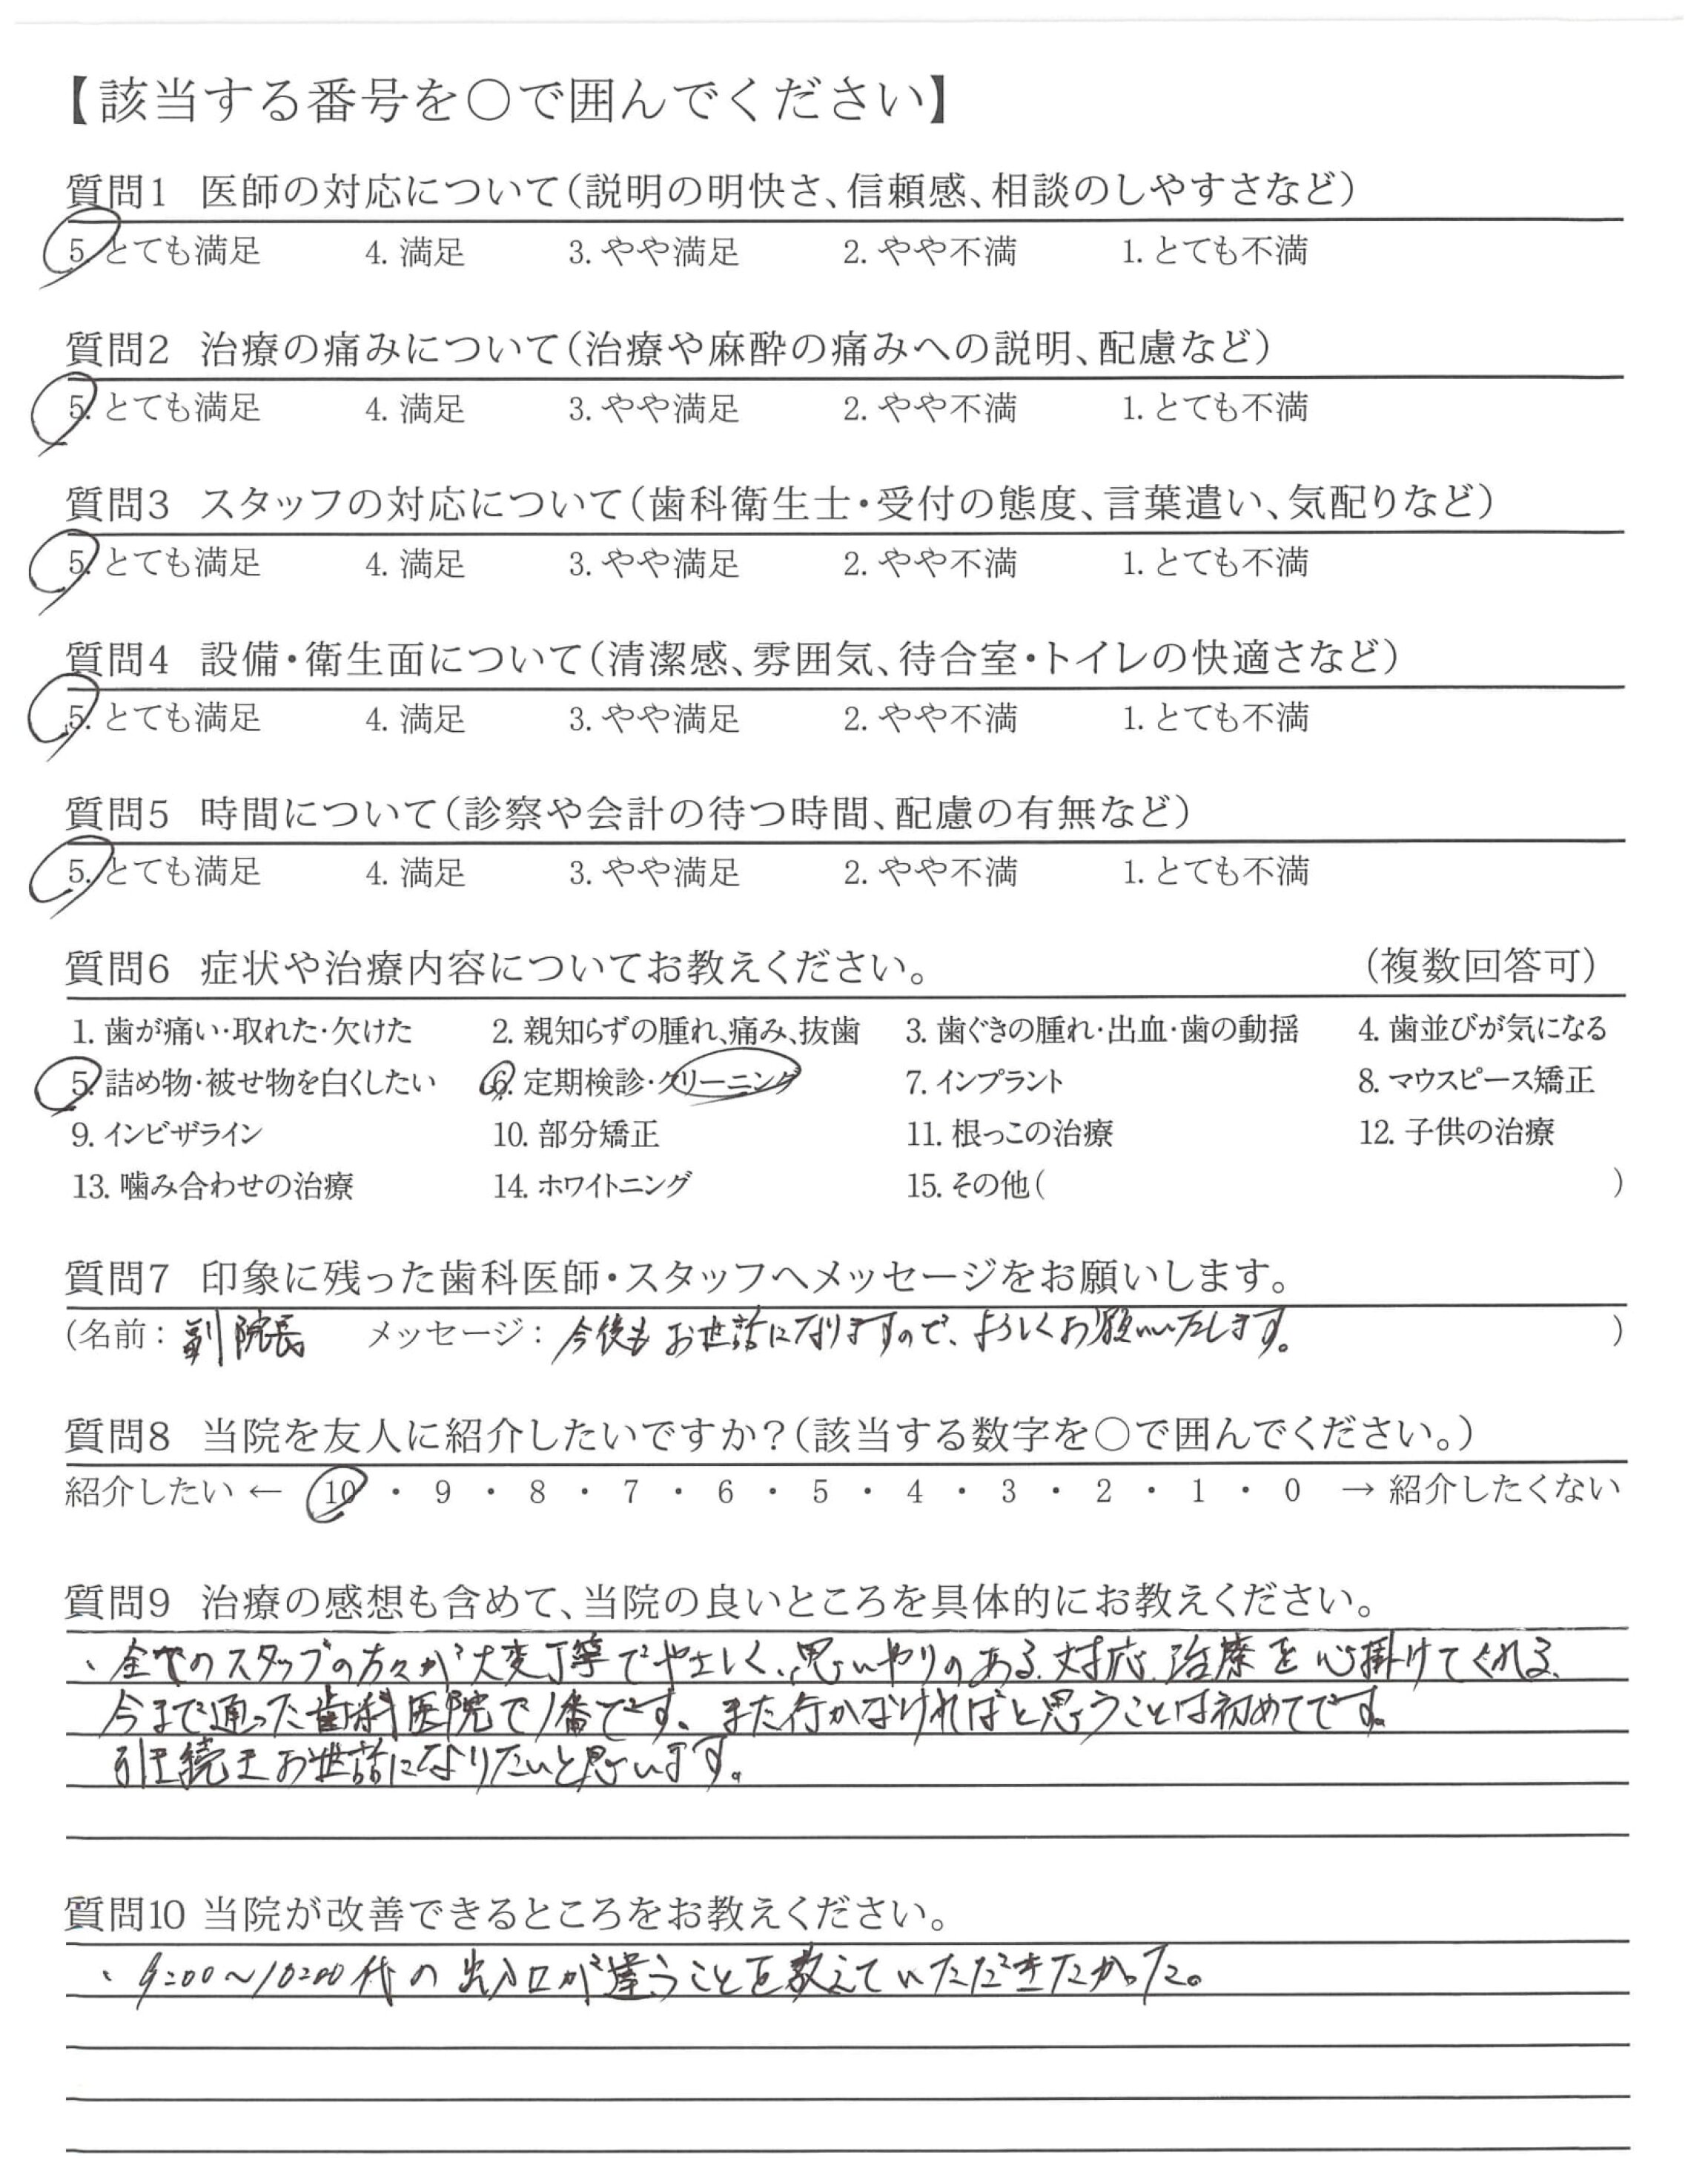 【該当する番号を〇で囲んでください】
質問1 医師の対応について(説明の明快さ、信頼感、相談のしやすさなど)
5. とても満足 4. 満足 3. やや満足 2. やや不満 1. とても不満
質問2 治療の痛みについて(治療や麻酔の痛みへの説明、配慮など)
5. とても満足 4. 満足 3. やや満足 2. やや不満 1. とても不満
質問3 スタッフの対応について(歯科衛生士・受付の態度、言葉遣い、気配りなど)
5. とても満足 4. 満足 3. やや満足 2. やや不満 1. とても不満
質問4 設備・衛生面について(清潔感、雰囲気、待合室・トイレの快適さなど)
5. とても満足 4. 満足 3. やや満足 2. やや不満 1. とても不満
質問5 時間について(診察や会計の待つ時間、配慮の有無など)
5. とても満足 4. 満足 3. やや満足 2. やや不満 1. とても不満
質問6 症状や治療内容についてお教えください。 (複数回答可)
1. 歯が痛い・取れた・欠けた 2. 親知らずの腫れ、痛み、抜歯 3. 歯ぐきの腫れ・出血・歯の動揺 4. 歯並びが気になる
5. 詰め物・被せ物を白くしたい 6. 定期検診・クリーニング 7. インプラント 8. マウスピース矯正
9. インビザライン 10. 部分矯正 11. 根っこの治療 12. 子供の治療
13. 噛み合わせの治療 14. ホワイトニング 15. その他( )
質問7 印象に残った歯科医師・スタッフへメッセージをお願いします。
(名前: 副院長 メッセージ: 今後もお世話になりますので、よろしくお願いいたします。 )
質問8 当院を友人に紹介したいですか?(該当する数字を〇で囲んでください。)
紹介したい ← 10 ・ 9 ・ 8 ・ 7 ・ 6 ・ 5 ・ 4 ・ 3 ・ 2 ・ 1 ・ 0 → 紹介したくない
質問9 治療の感想も含めて、当院の良いところを具体的にお教えください。
、全てのスタッフの方々が大変丁寧でやさしく、思いやりのある対応、治療を心掛けてくれる。
今まで通った歯科医院で1番です。また行かなければと思うことは初めてです。
引き続きお世話になりたいと思います。
質問10 当院が改善できるところをお教えください。
、9:00～10:00代の出入口が違うことを教えていただきたかった。